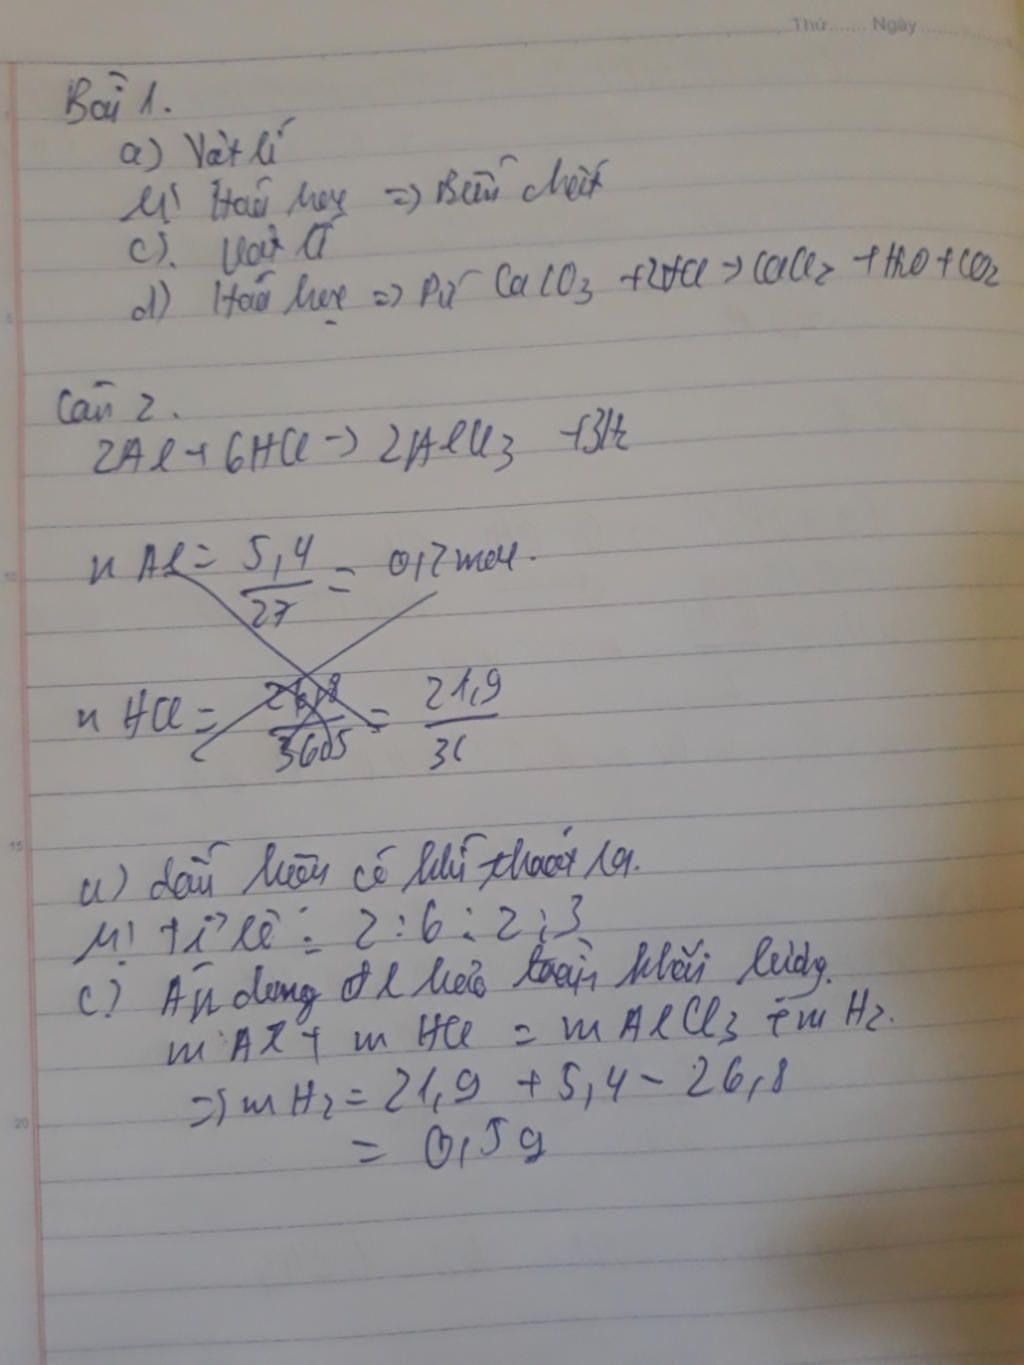 Thứ....... Ngày.......
Bài 1.
a) Vật lí
b) Hoá học => Biến chất
c). Vật lí
d) Hoá học => Pứ CaCO3 +2HCl -> CaCl2 + H2O + CO2
Câu 2.
2Al + 6HCl -> 2AlCl3 +3H2
n Al = 5,4/27 = 0,2 mol.
n HCl = 26,8/36,5 = 21,9/36
a) dấu hiệu có khí thoát ra.
b) tỉ lệ : 2 : 6 : 2 : 3
c) Áp dụng đl bảo toàn khối lượng.
m Al + m HCl = m AlCl3 + m H2.
=> m H2 = 21,9 + 5,4 - 26,8
= 0,5g
5
10
15
20